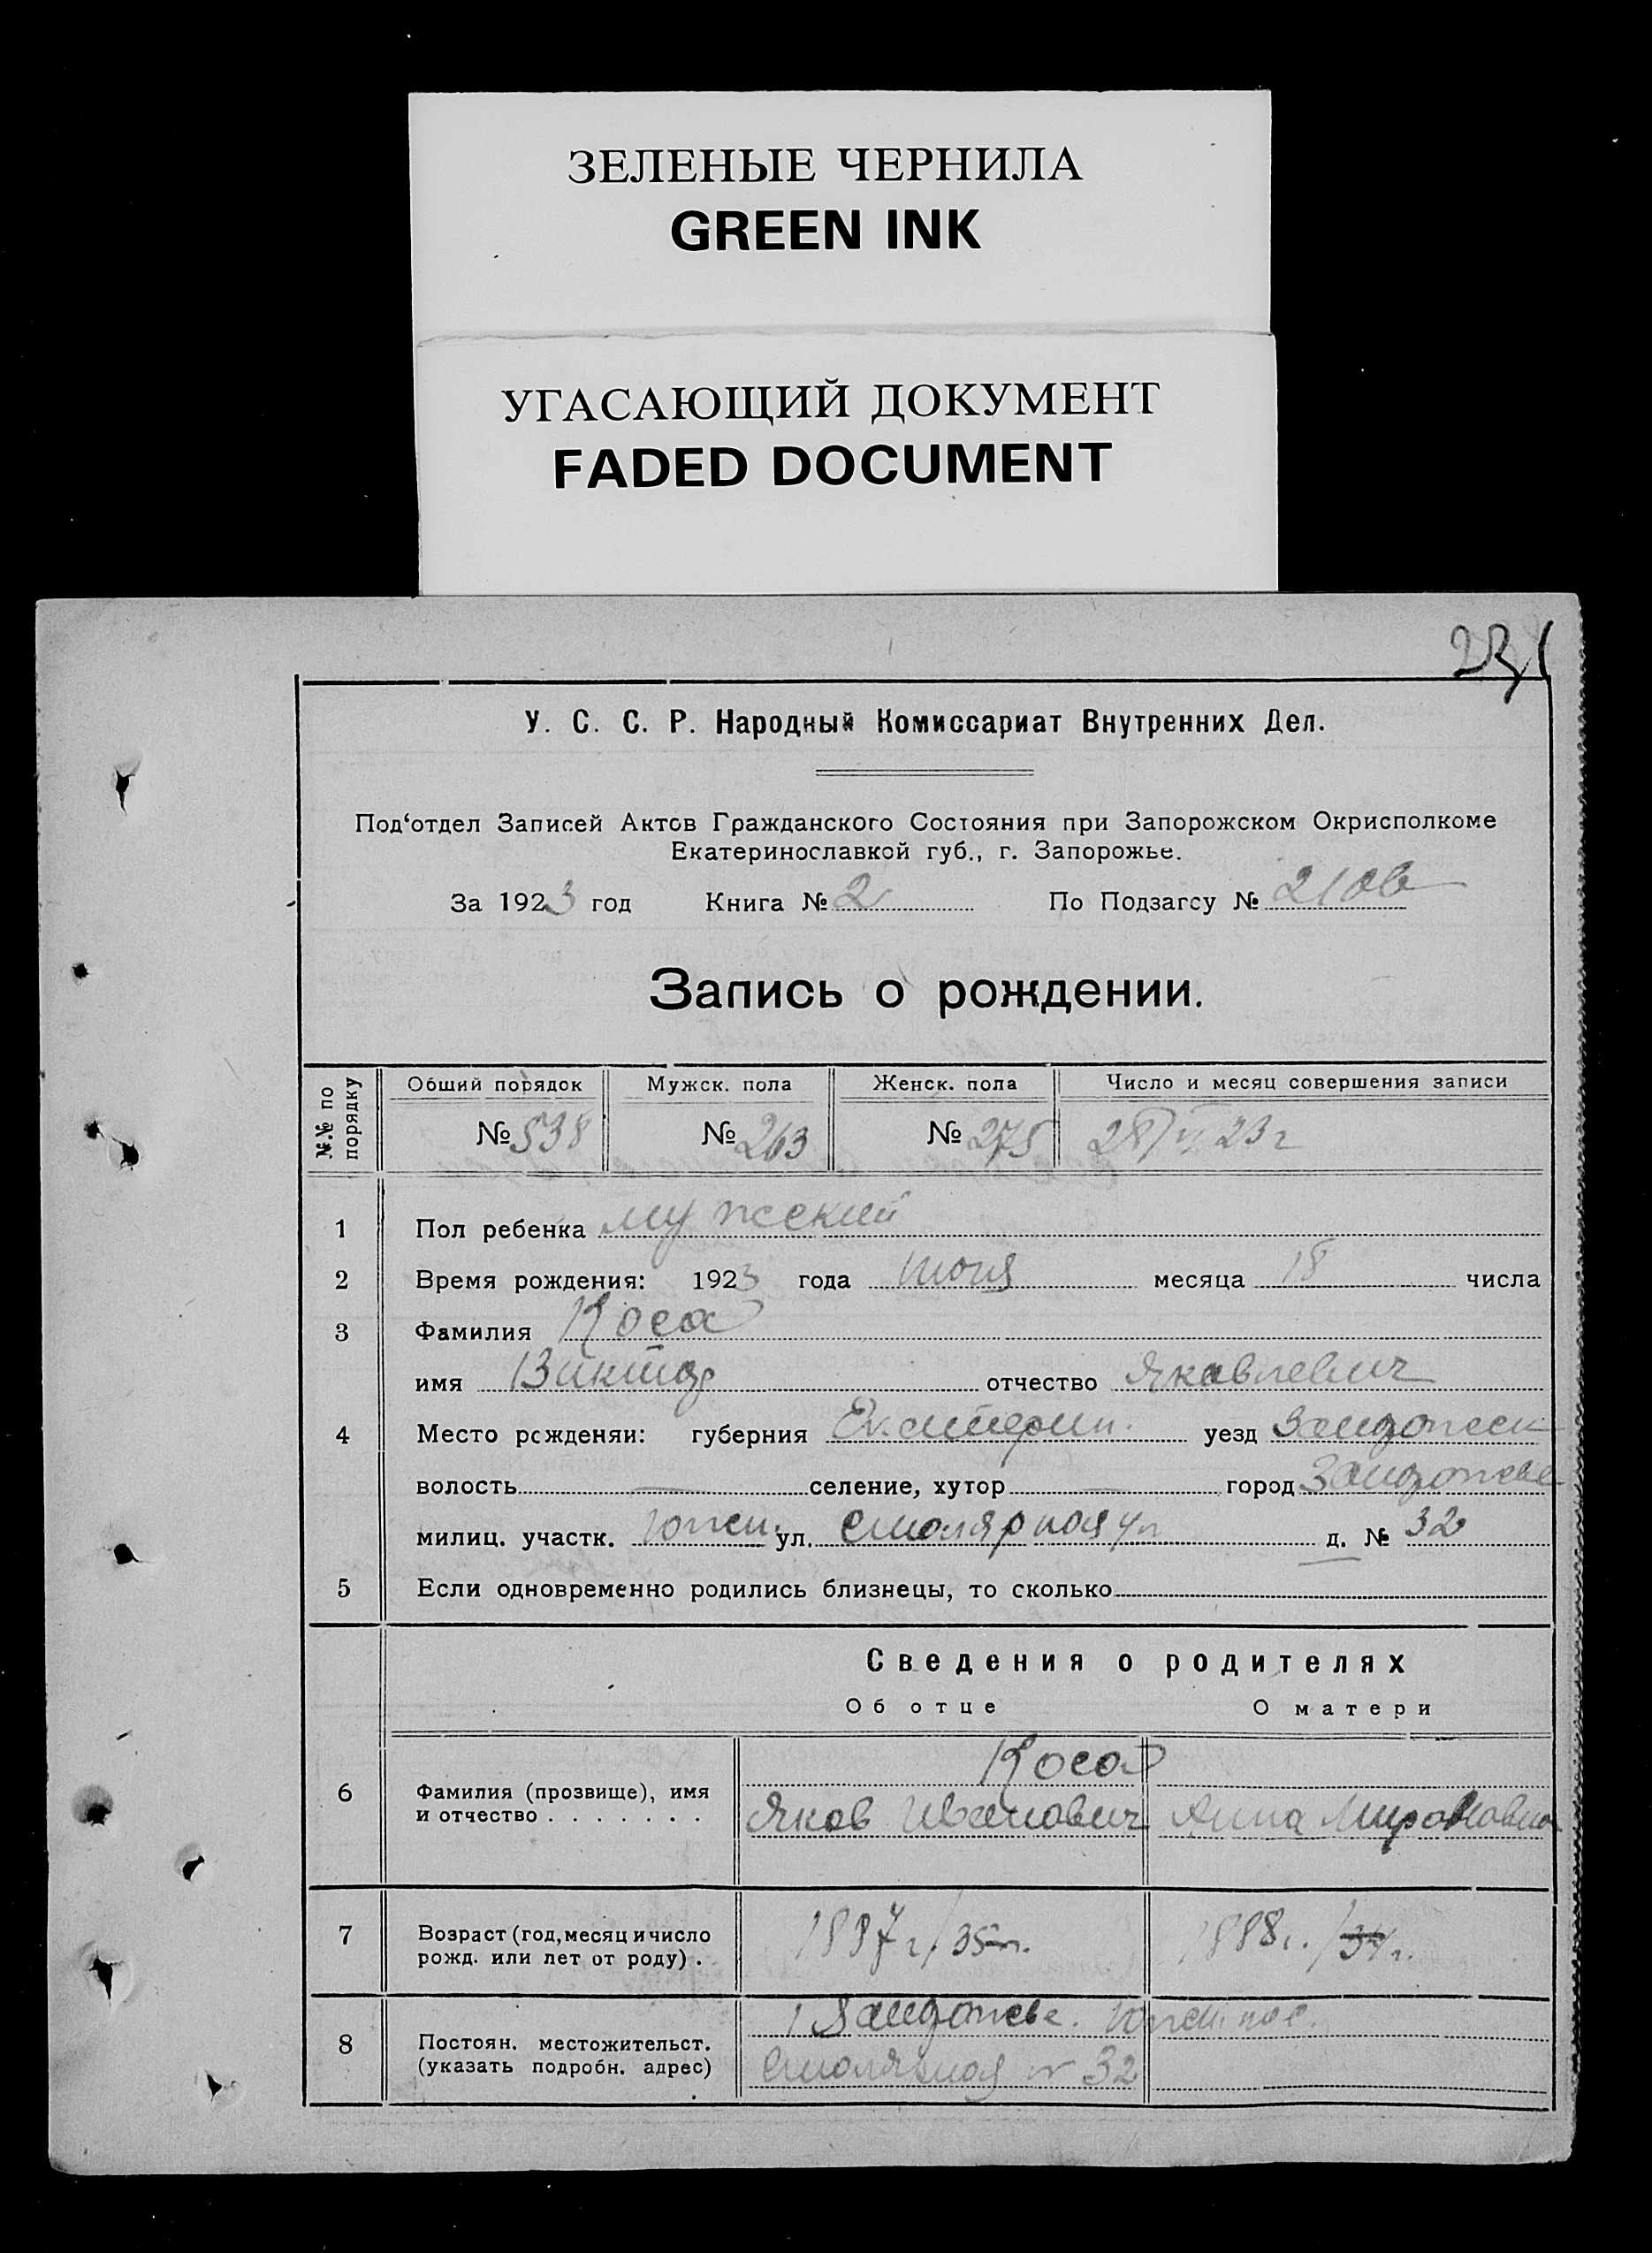 ЗЕЛЕНЫЕ ЧЕРНИЛА
GREEN INK
УГАСАЮЩИЙ ДОКУМЕНТ
FADED DOCUMENT
У. С. С. Р. Народный Комиссариат Внутренних Дел.
Под‘отдел Записей Актов Гражданского Состояния при Запорожском Окрисполкоме
Екатеринославкой губ., г. Запорожье.
За 1923 год Книга № 2 По Подзагсу №
Запись о рождении.
№№ по порядку Общий порядок Мужск. пола Женск. пола Число и месяц совершения записи
№ 538 № 263 № 275 28/VI 23 г
1 Пол ребенка мужский
2 Время рождения: 1923 года июня месяца 18 числа
3 Фамилия Коса
имя Виктор отчество Яковлевич
4 Место рожденяи: губерния Екатерин. уезд Запорожск
волость — селение, хутор — город Запорожье
милиц. участк. Южн. ул. Столярная ул д. № 32
5 Если одновременно родились близнецы, то сколько
Сведения о родителях
Об отце О матери
Коса
6 Фамилия (прозвище), имя
и отчество . . . . . . . Яков Иванович Анна Мироновна
7 Возраст (год, месяц и число
рожд. или лет от роду) . 1887 г./35 л. 1888 г./34 г.
г Запорожье. Южн. пос.
8 Постоян. местожительст.
(указать подробн. адрес) Столярная № 32